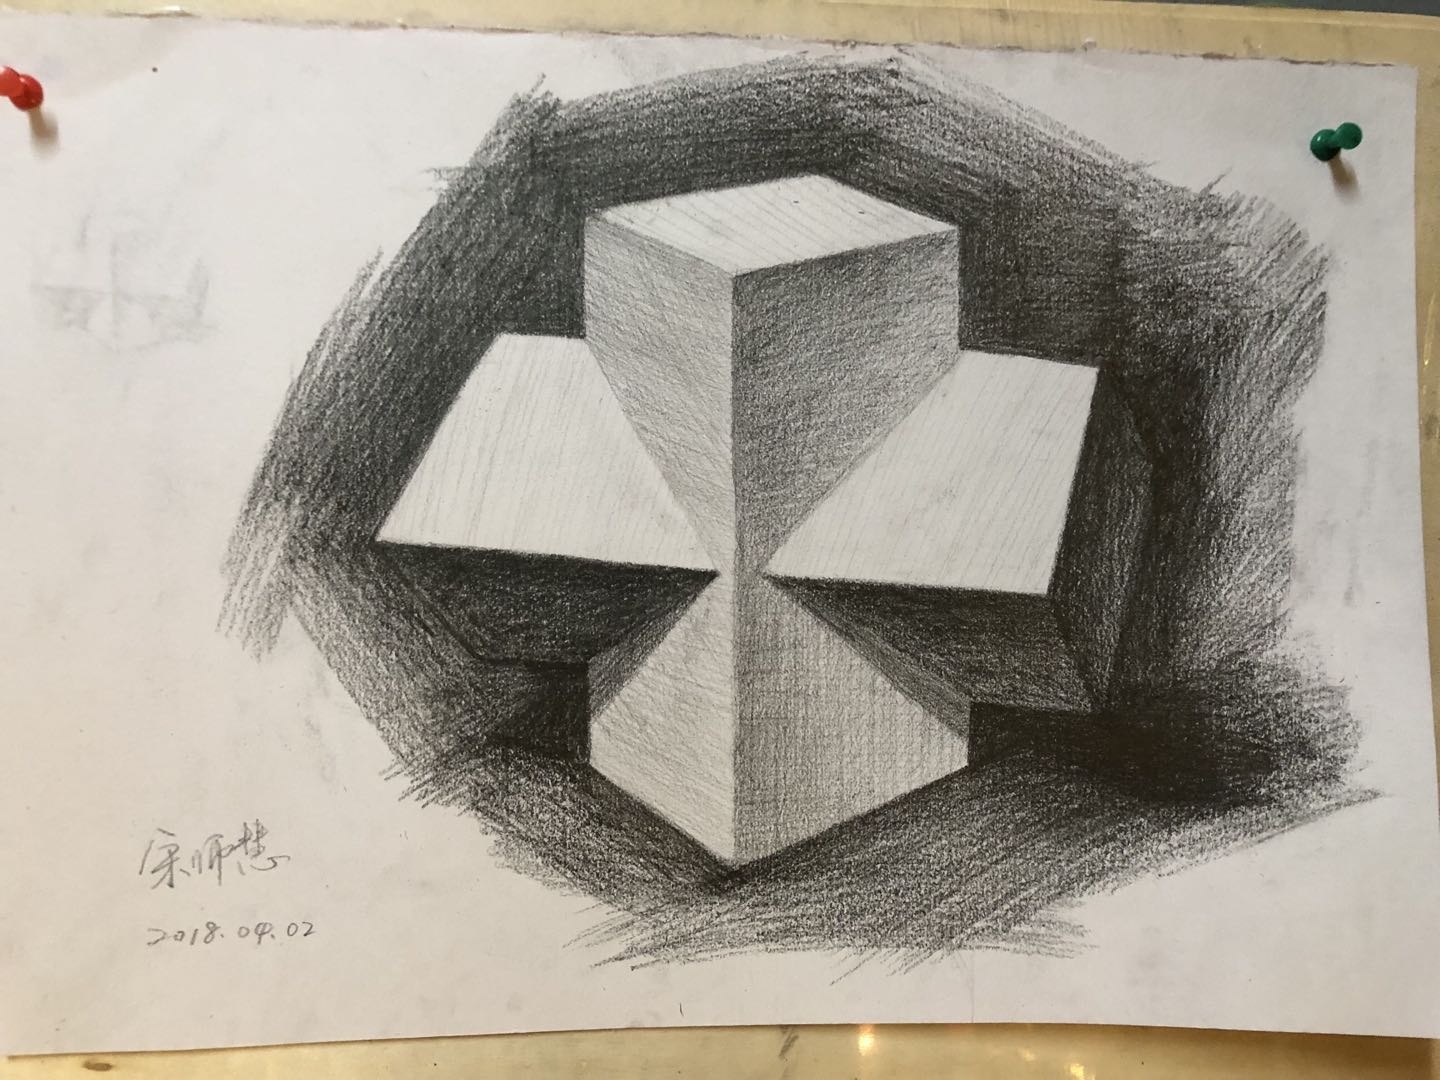 宋师慧
2018.04.02